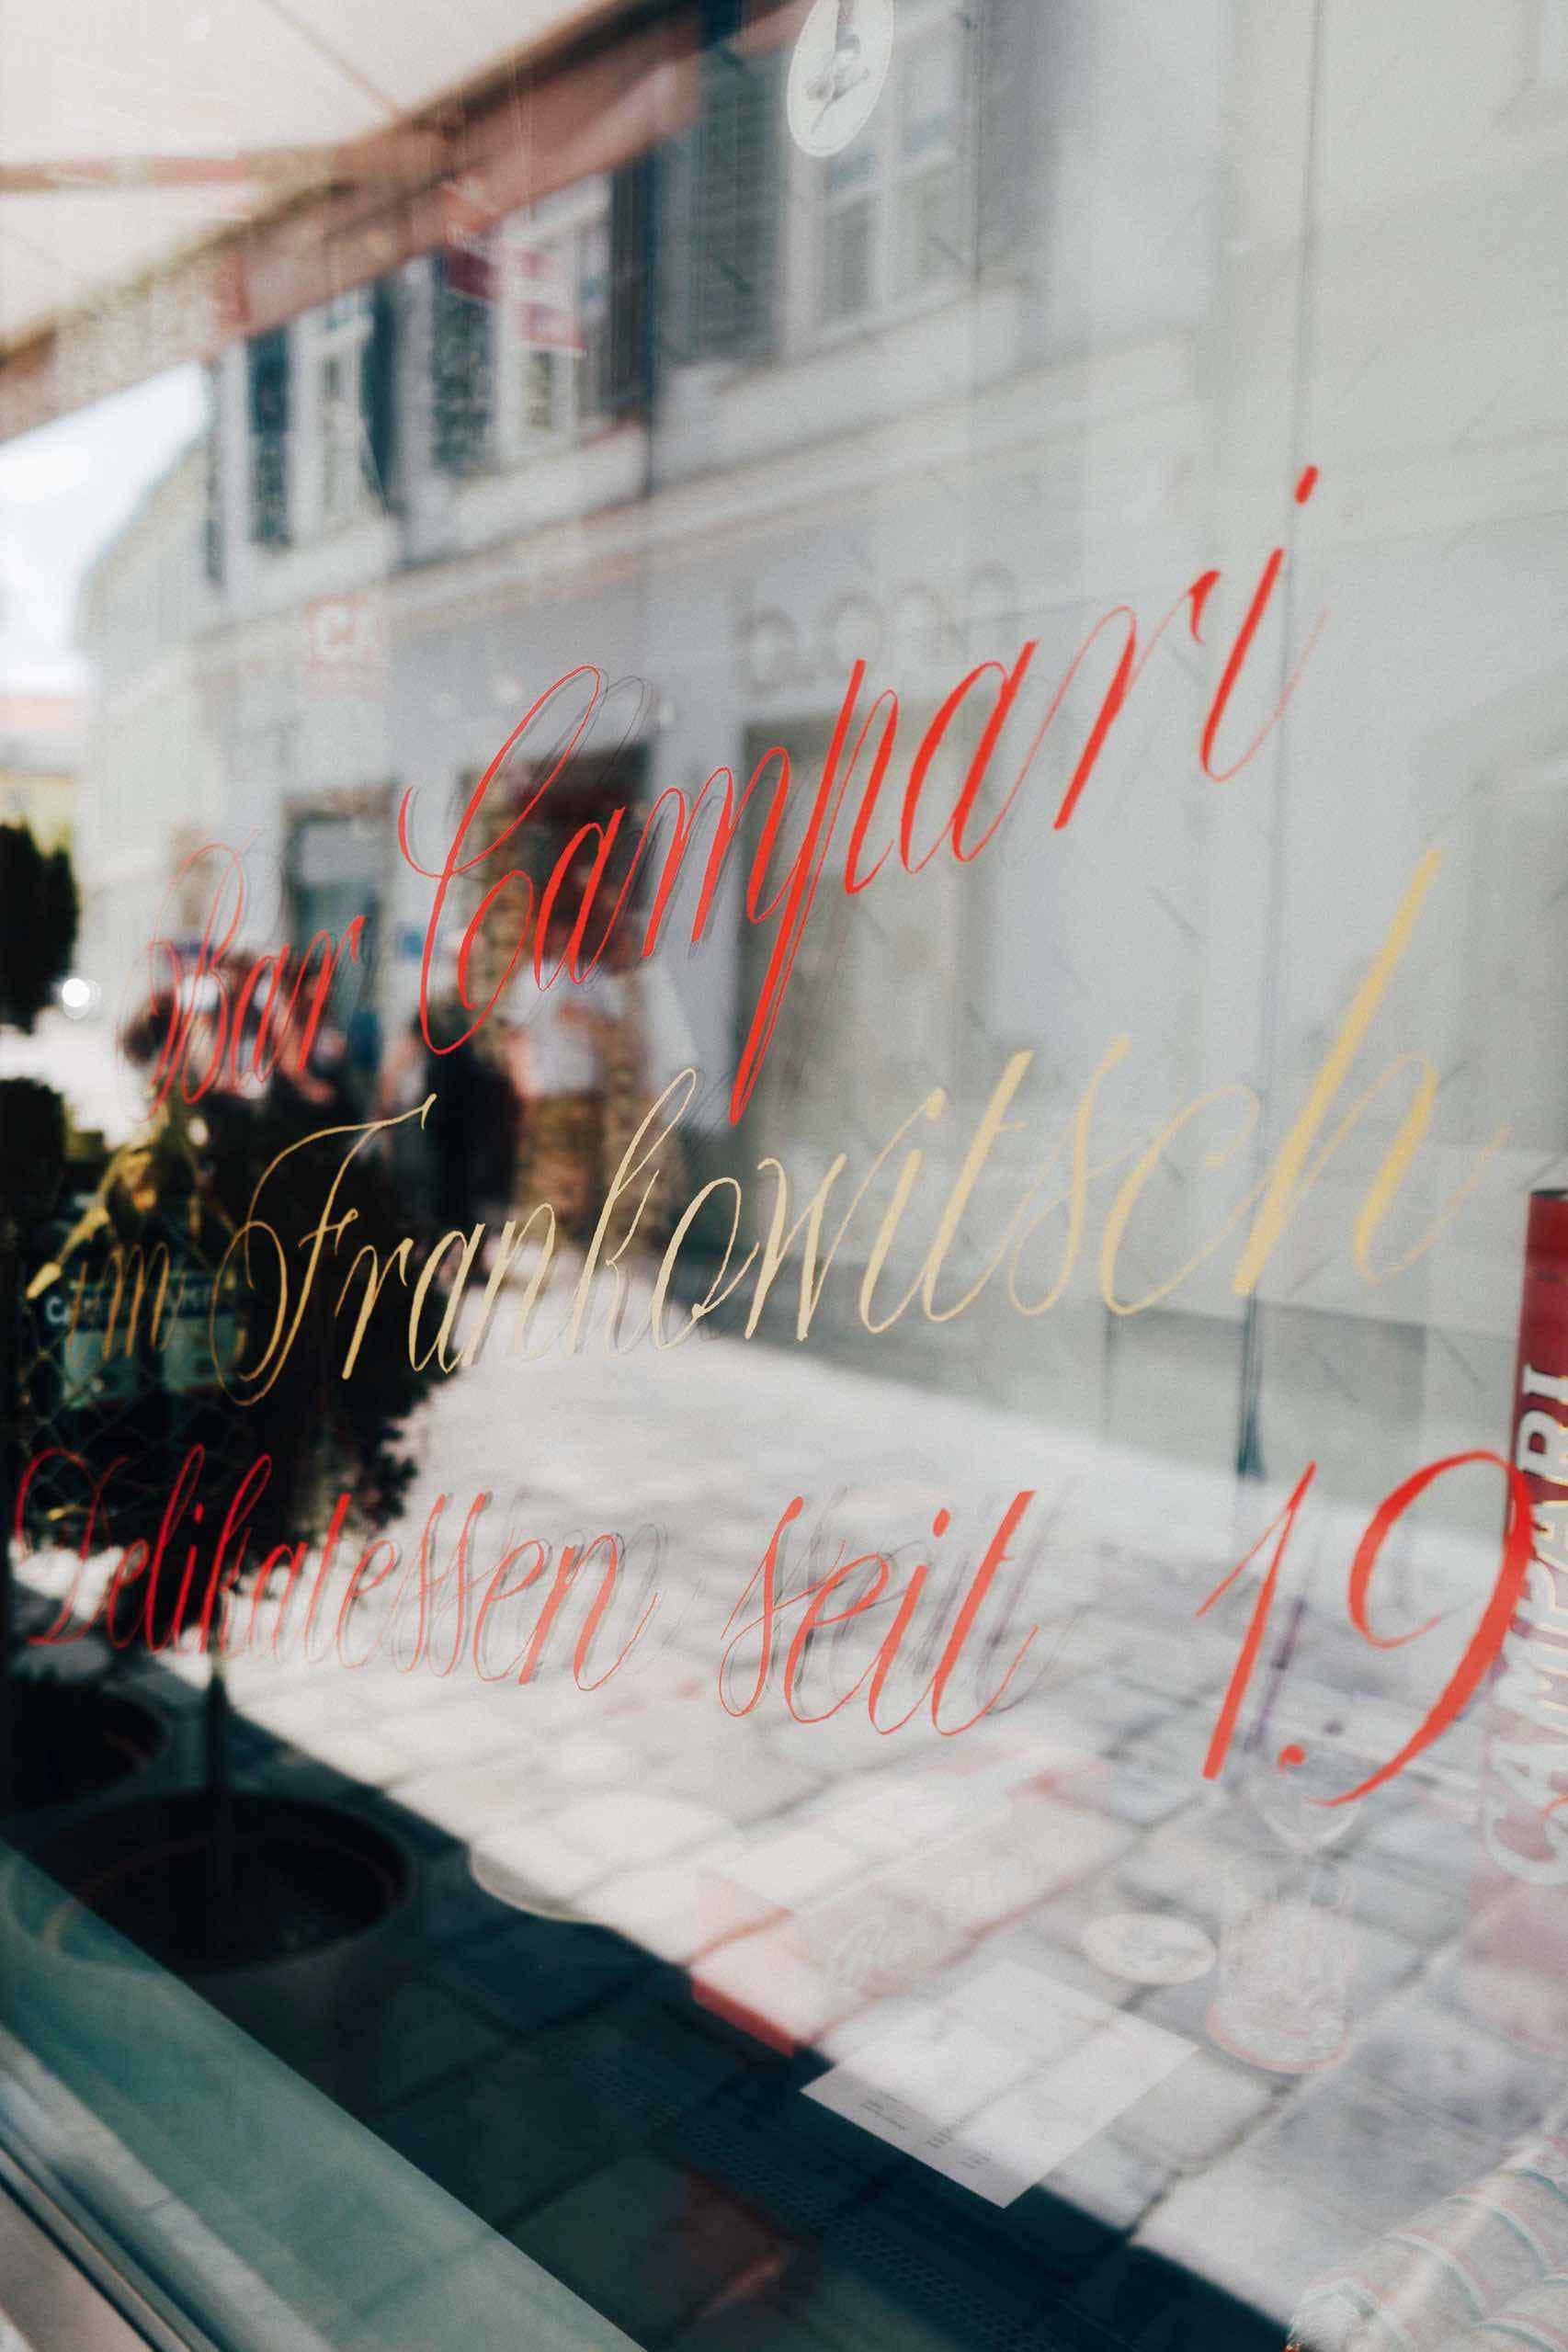 Bar Campari
im Frankowitsch
Delikatessen seit 19
CAMPARI